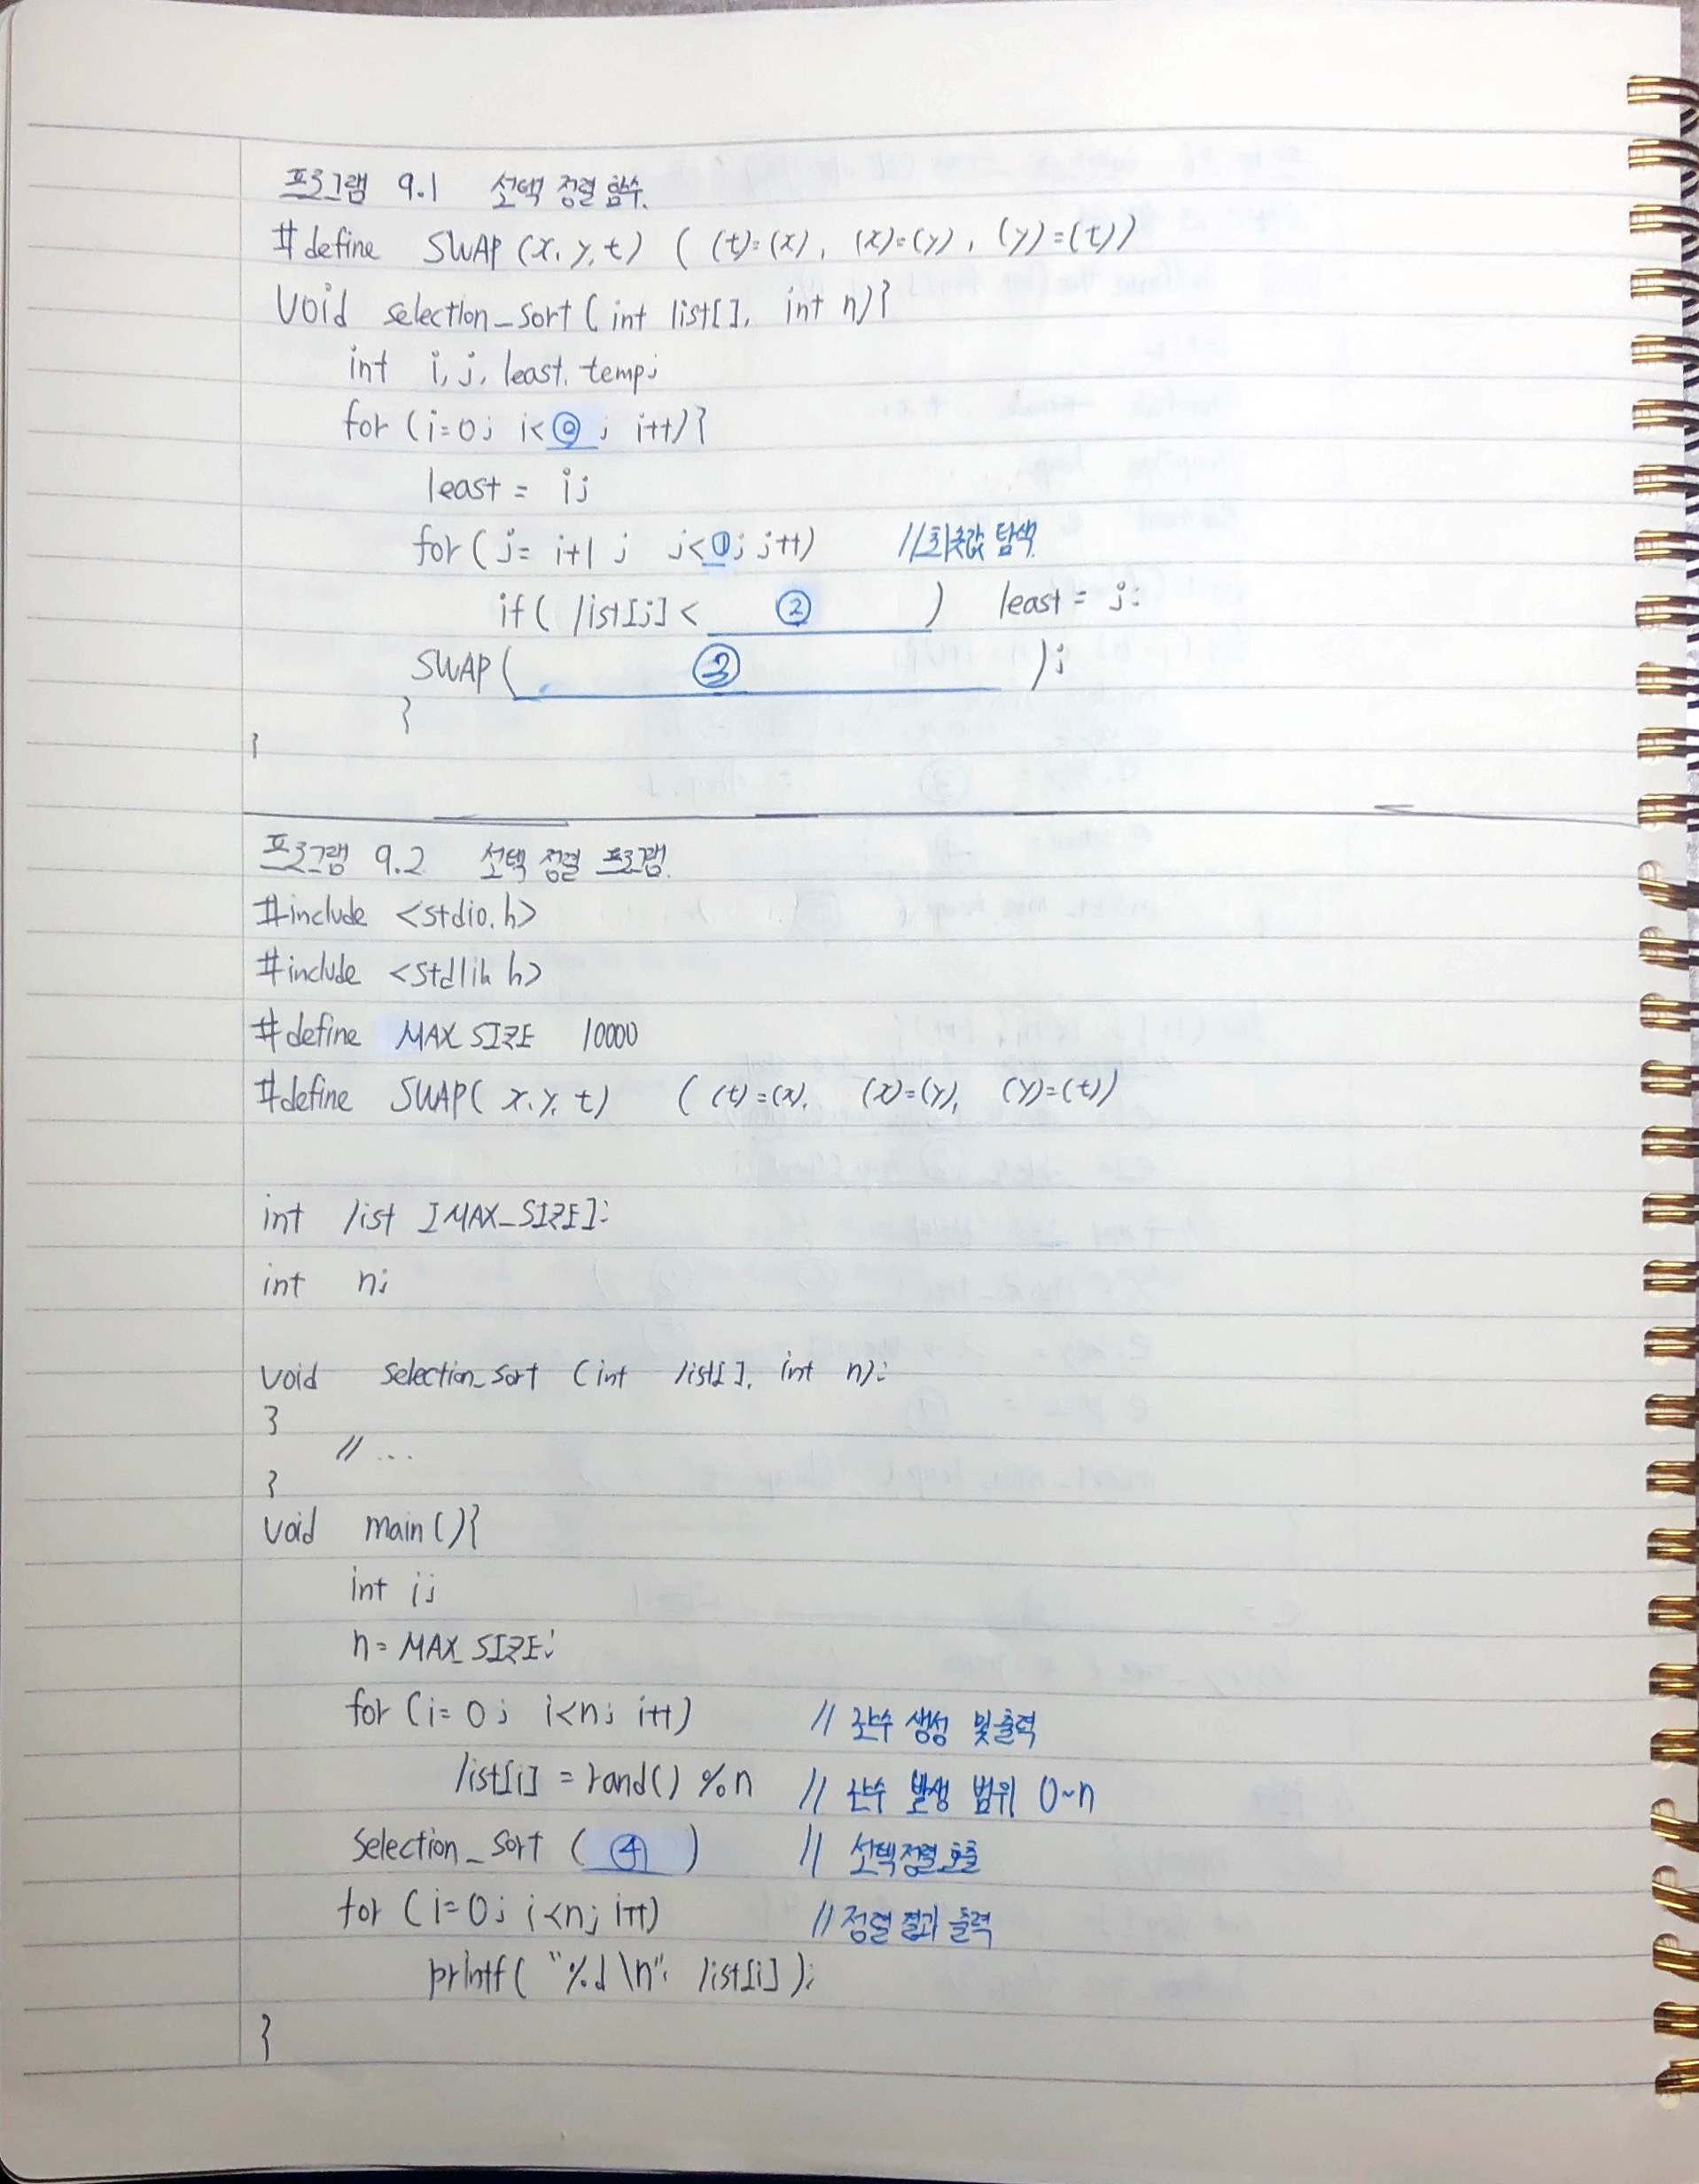 프로그램 9.1 선택 정렬 함수.
#define SWAP (x, y, t) ( (t)=(x), (x)=(y), (y)=(t))
void selection_sort ( int list[], int n){
int i, j, least, temp;
for (i=0; i<⓪; i++){
least = i;
for ( j= i+1 ; j<①; j++) // 최솟값 탐색
if( list[j] < ② ) least = j;
SWAP( ③ );
}
}
프로그램 9.2 선택 정렬 프로그램.
#include <stdio.h>
#include <stdlib.h>
#define MAX_SIZE 10000
#define SWAP( x, y, t) ( (t)=(x), (x)=(y), (y)=(t))
int list [MAX_SIZE];
int n;
void selection_sort (int list[], int n);
}
// ...
}
void main(){
int i;
n= MAX_SIZE;
for (i= 0; i<n; i++) // 난수 생성 및 출력
list[i] = rand() %n // 난수 발생 범위 0~n
selection_sort ( ④ ) // 선택정렬 호출
for (i=0; i<n; i++) // 정렬 결과 출력
printf( "%d\n", list[i] );
}